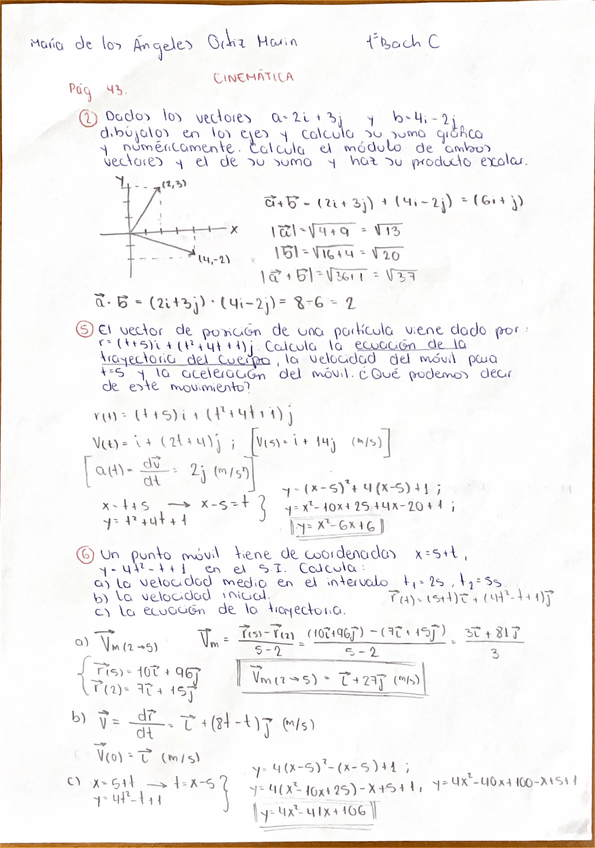 María de los Ángeles Ortiz Marin 1º Bach C
CINEMÁTICA
Pág 43.
② Dados los vectores a=2i+3j y b=4i-2j
dibújalos en los ejes y calcula su suma gráfica
y numéricamente. Calcula el módulo de ambos
vectores y el de su suma y haz su producto escalar.
Y
(2,3)
X
(4,-2)
a⃗+b⃗ = (2i+3j)+(4i-2j) = (6i+j)
|a⃗|=√4+9 = √13
|b⃗|=√16+4 = √20
|a⃗+b⃗|=√36+1 = √37
a⃗·b⃗ = (2i+3j)·(4i-2j) = 8-6 = 2
⑤ El vector de posición de una partícula viene dado por:
r=(t+5)i+(t²+4t+1)j. Calcula la ecuación de la
trayectoria del cuerpo, la velocidad del móvil para
t=5 y la aceleración del móvil. ¿Qué podemos decir
de este movimiento?
r(t) = (t+5)i + (t²+4t+1)j
V(t) = i + (2t+4)j ; [V(5)=i+14j (m/s)]
[a(t) = dv⃗/dt = 2j (m/s²)]
x=t+5 → x-5=t
y=t²+4t+1
y=(x-5)²+4(x-5)+1 ;
y=x²-10x+25+4x-20+1 ;
y=x²-6x+6
⑥ Un punto móvil tiene de coordenadas x=5+t,
y=4t²-t+1 en el S.I. Calcula:
a) la velocidad media en el intervalo t₁=2s, t₂=5s
b) la velocidad inicial.
r⃗(t)=(5+t)i⃗+(4t²-t+1)j⃗
c) la ecuación de la trayectoria.
a) V⃗m(2→5) V⃗m = r⃗(5)-r⃗(2)/5-2 = (10i⃗+96j⃗)-(7i⃗+15j⃗)/5-2 = 3i⃗+81j⃗/3
r⃗(5)=10i⃗+96j⃗
r⃗(2)=7i⃗+15j⃗
V⃗m(2→5) = i⃗+27j⃗ (m/s)
b) V⃗ = dr⃗/dt = i⃗+(8t-t)j⃗ (m/s)
V⃗(0) = i⃗ (m/s)
c) x=5+t → t=x-5
y=4t²-t+1
y=4(x-5)²-(x-5)+1 ;
y=4(x²-10x+25)-x+5+1, y=4x²-40x+100-x+5+1
y=4x²-41x+106